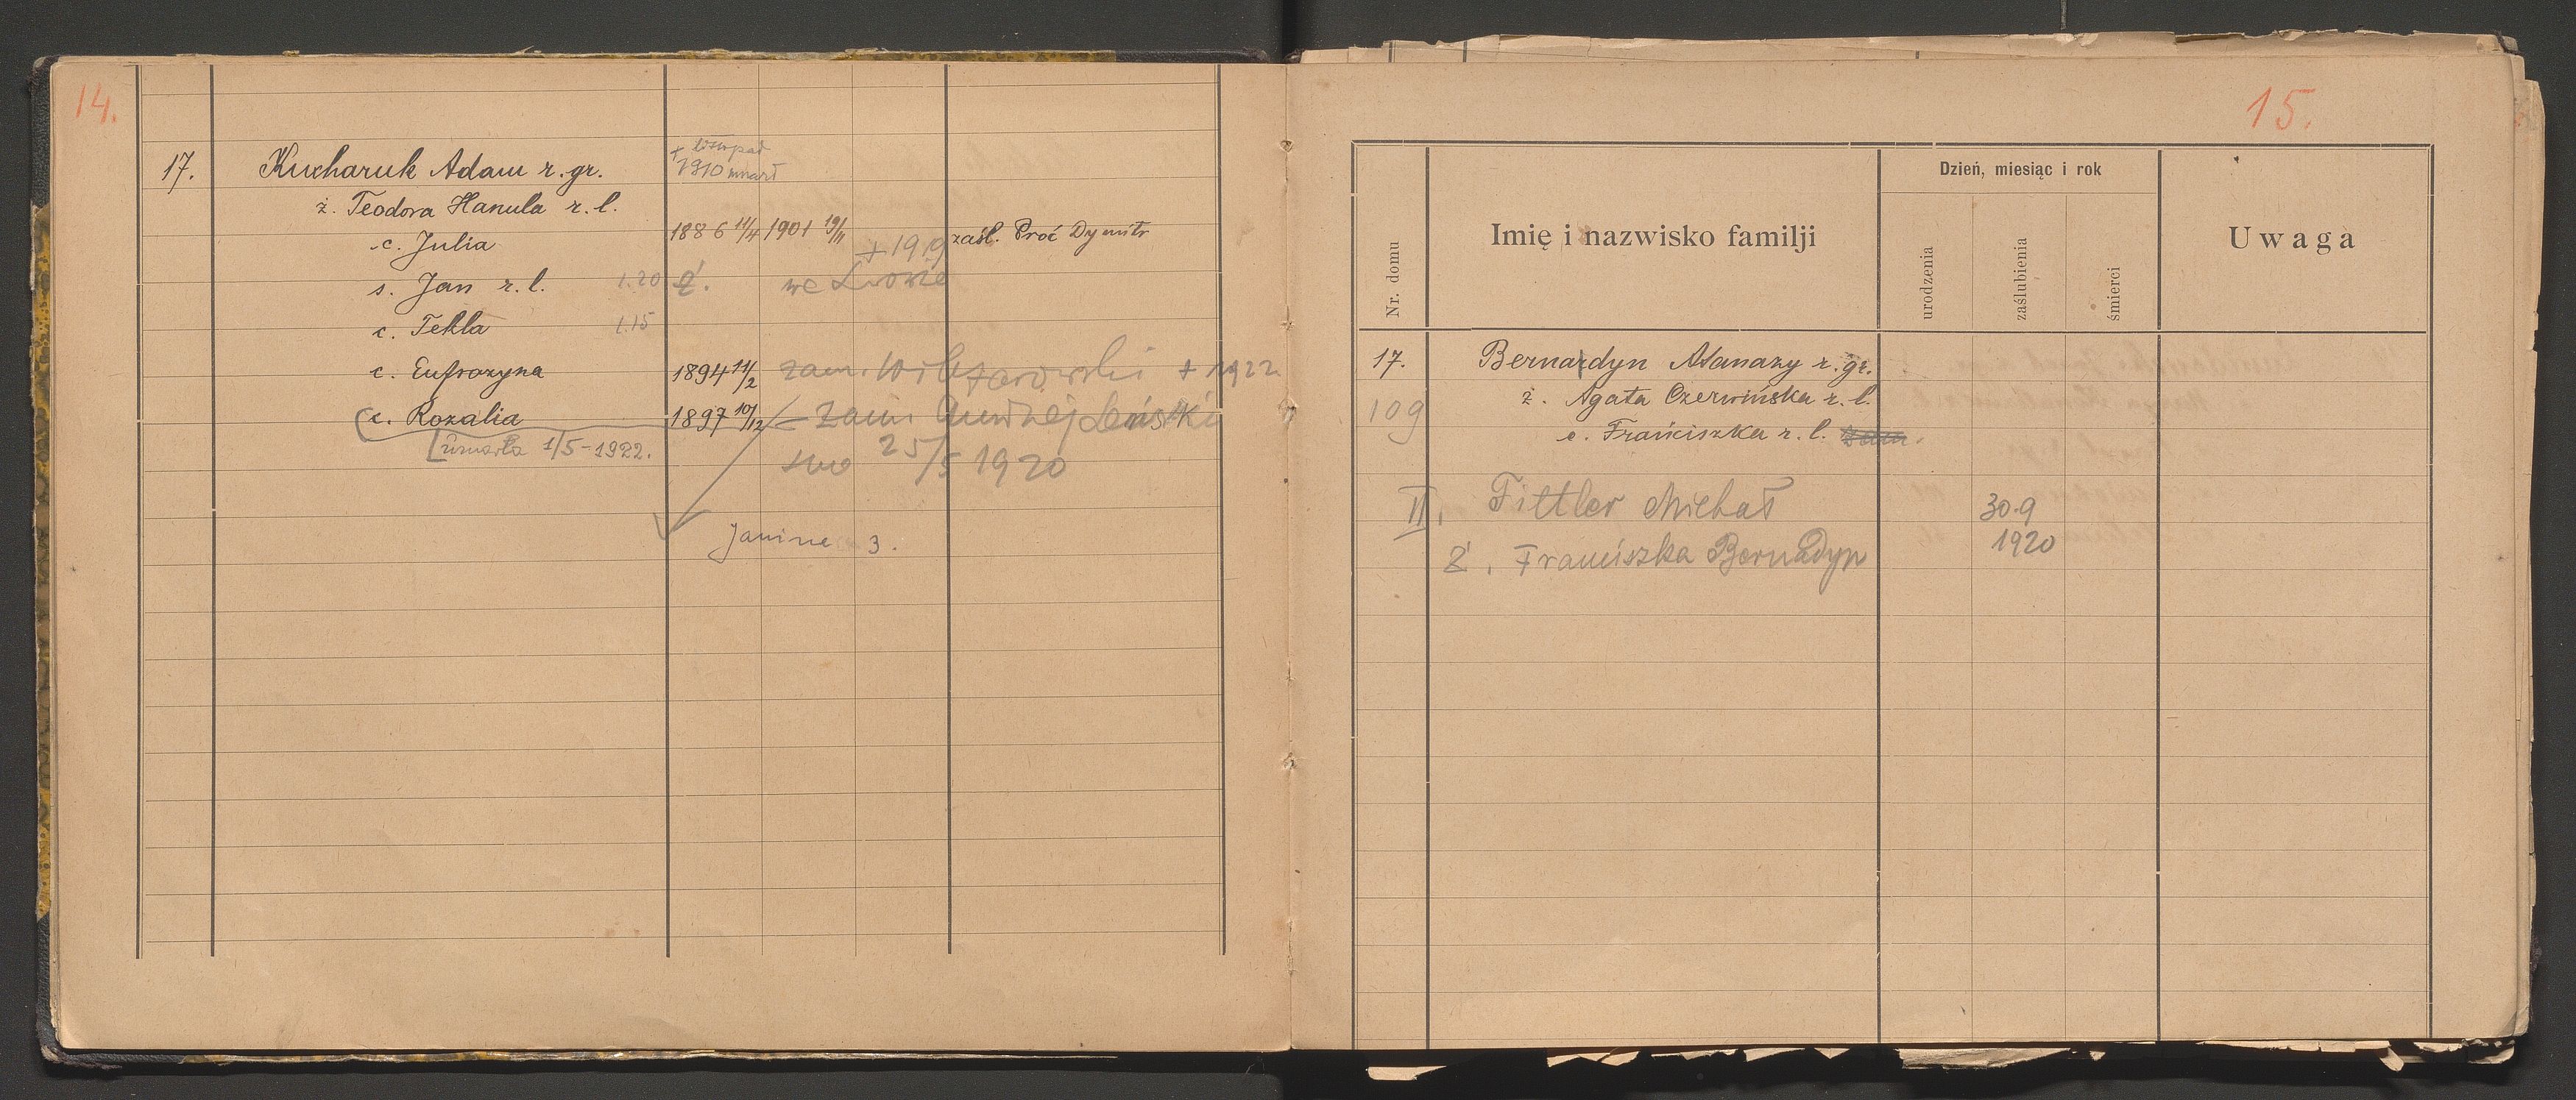 14.
+ listopad
17. Kucharuk Adam r. gr. 1910 umarł
ż. Teodora Hanula r. l.
c. Julia 1886 11/4 1901 19/11 zaśl. Proć Dymitr
+ 1919
s. Jan r. l. 1.20 ż. we Lwowie
c. Tekla 1.15
c. Eufrozyna 1894 14/2 zam. + 1922
c. Rozalia 1897 10/12 zam. Andrzej Leński
umarła 1/5-1922. 25/5 1920
Janine 3.
15.
Nr. domu
Imię i nazwisko familji
Dzień, miesiąc i rok
urodzenia
zaślubienia
śmierci
Uwaga
17. Bernardyn Atanazy r. gr.
109 ż. Agata Czerwińska r. l.
c. Franciszka r. l. zam.
II. Tittler Michał 30.9
1920
Ż. Franciszka Bernadyn